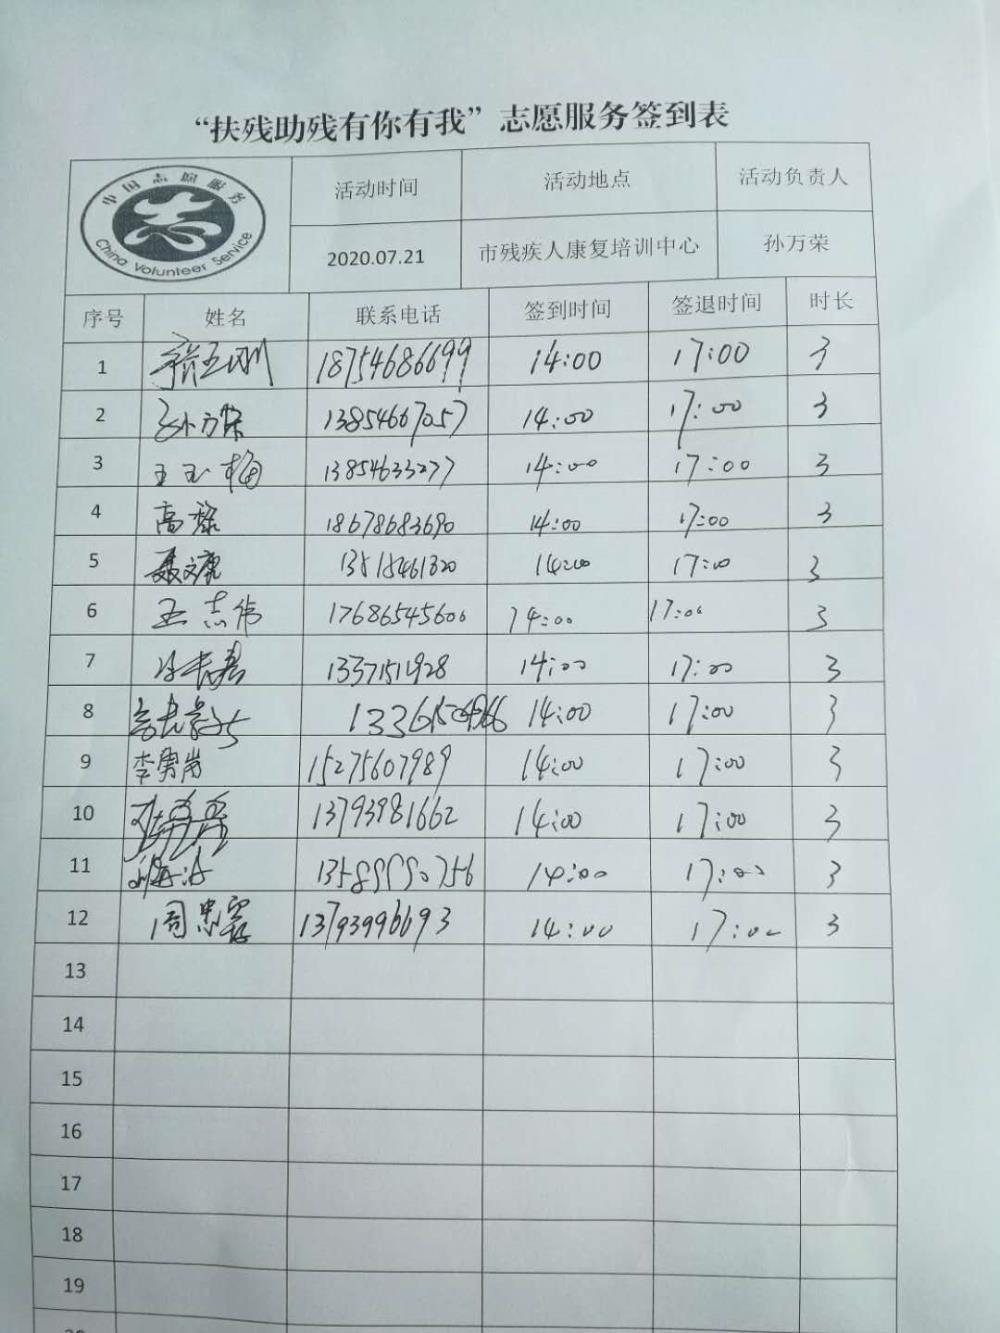 “扶残助残有你有我”志愿服务签到表
中国志愿服务
China Volunteer Service
活动时间 活动地点 活动负责人
2020.07.21 市残疾人康复培训中心 孙万荣
序号 姓名 联系电话 签到时间 签退时间 时长
1 18754686699 14:00 17:00 3
2 孙万荣 13854667057 14:00 17:00 3
3 王玉梅 13854633277 14:00 17:00 3
4 高 18678683690 14:00 17:00 3
5 聂文康 13515461320 14:00 17:00 3
6 王志伟 17686545600 14:00 17:00 3
7 13371511928 14:00 17:00 3
8 14:00 17:00 3
9 李勇岗 15275607989 14:00 17:00 3
10 13793981662 14:00 17:00 3
11 14:00 17:00 3
12 周忠霖 13793996693 14:00 17:00 3
13
14
15
16
17
18
19